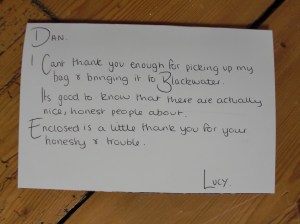 DAN.
I Cant thank you enough for picking up my
bag & bringing it to Blackwater.
Its good to know that there are actually
nice, honest people about.
Enclosed is a little thank you for your
honesty & trouble.
LUCY.